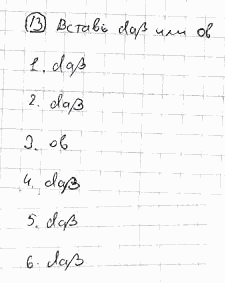 13 Вставь daß или ob
1. daß
2. daß
3. ob
4. daß
5. daß
6. daß